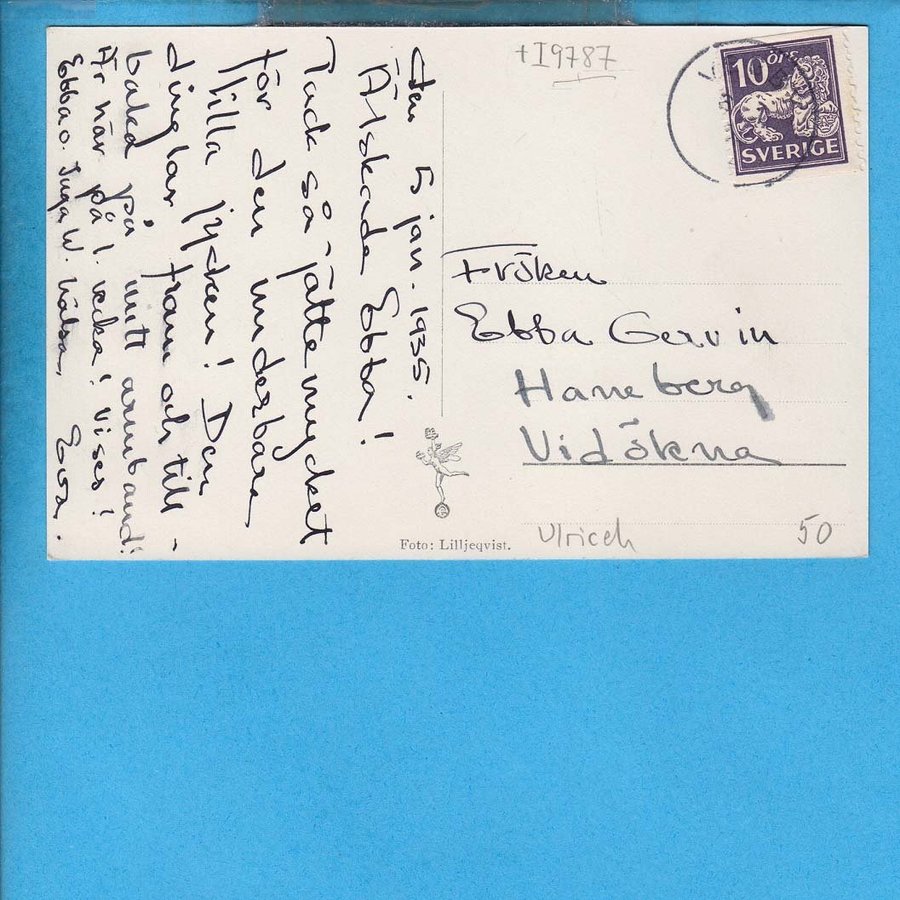 den 5 jan. 1935.
Älskade Ebba!
Tack så jättemycket
för den underbara
lilla jycken! Den
dinglar fram och till-
baka på mitt armband!
Är när på 1. vecka! vises!
Ebba o. Inga W. hälsa. Eva.
+I9787
10 ÖRE
SVERIGE
Fröken
Ebba Gervin
Haneberg
Vidökna
Foto: Lilljeqvist.
Ulriceh
50